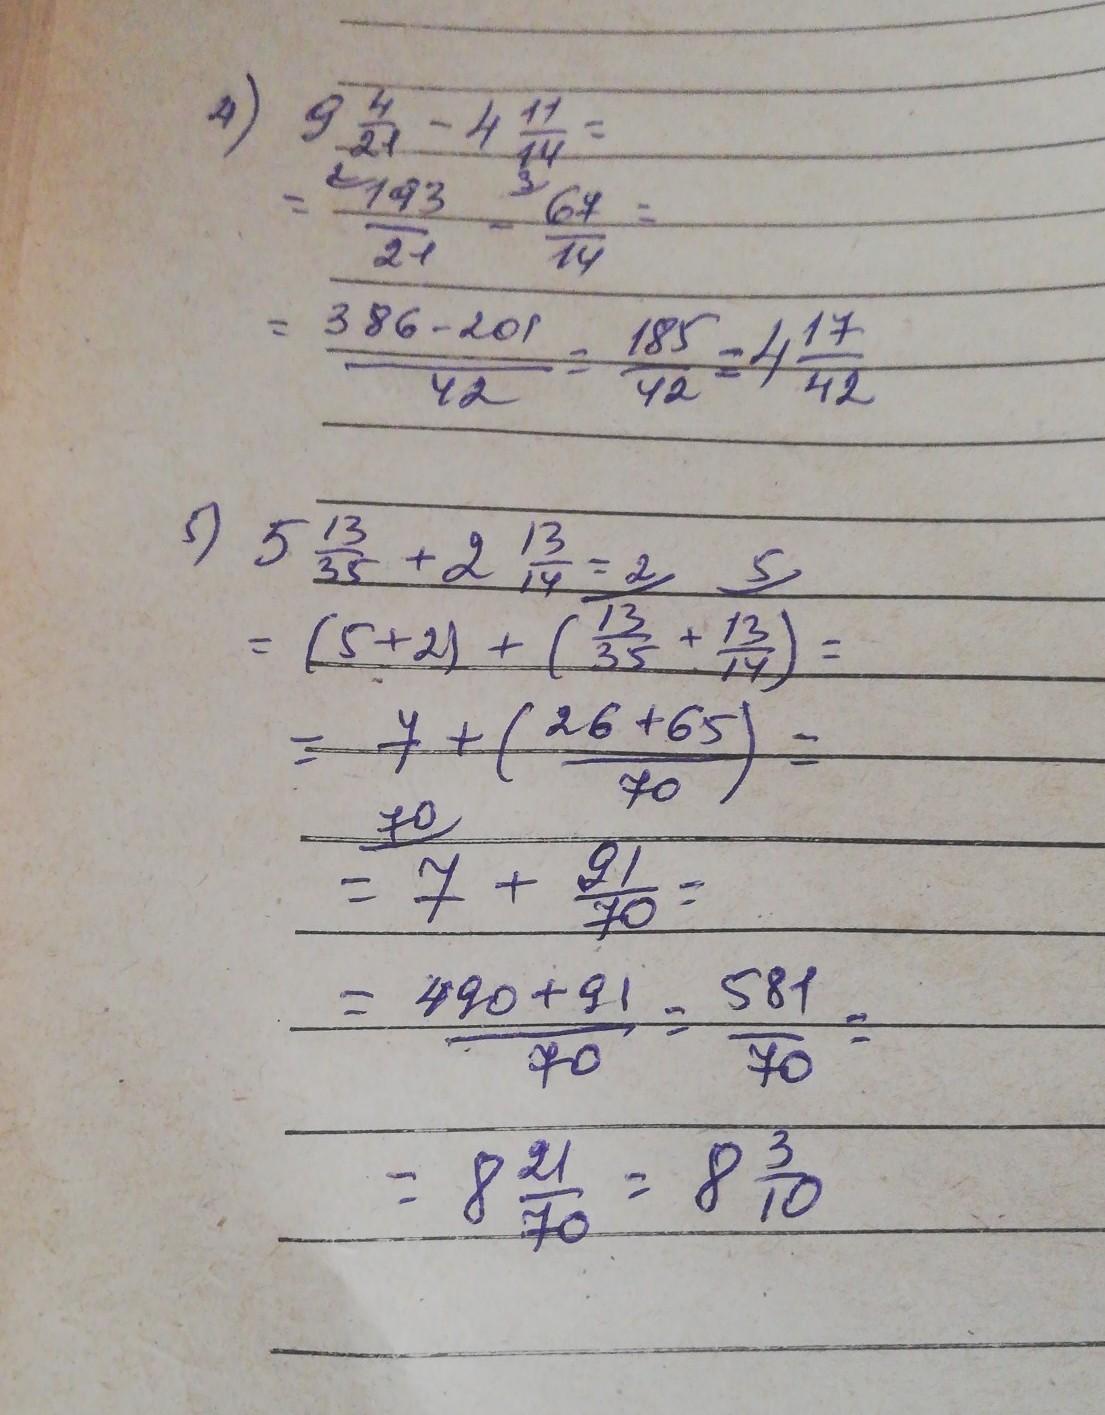 4) 9 4/21 - 4 11/14 =
= ²⁾193/21 - ³⁾67/14 =
= (386-201)/42 = 185/42 = 4 17/42
5) 5 13/35 + 2 13/14 =
= (5+2) + (²⁾13/35 + ⁵⁾13/14) =
= 7 + ((26+65)/70) =
= ⁷⁰⁾7 + 91/70 =
= (490+91)/70 = 581/70 =
= 8 21/70 = 8 3/10